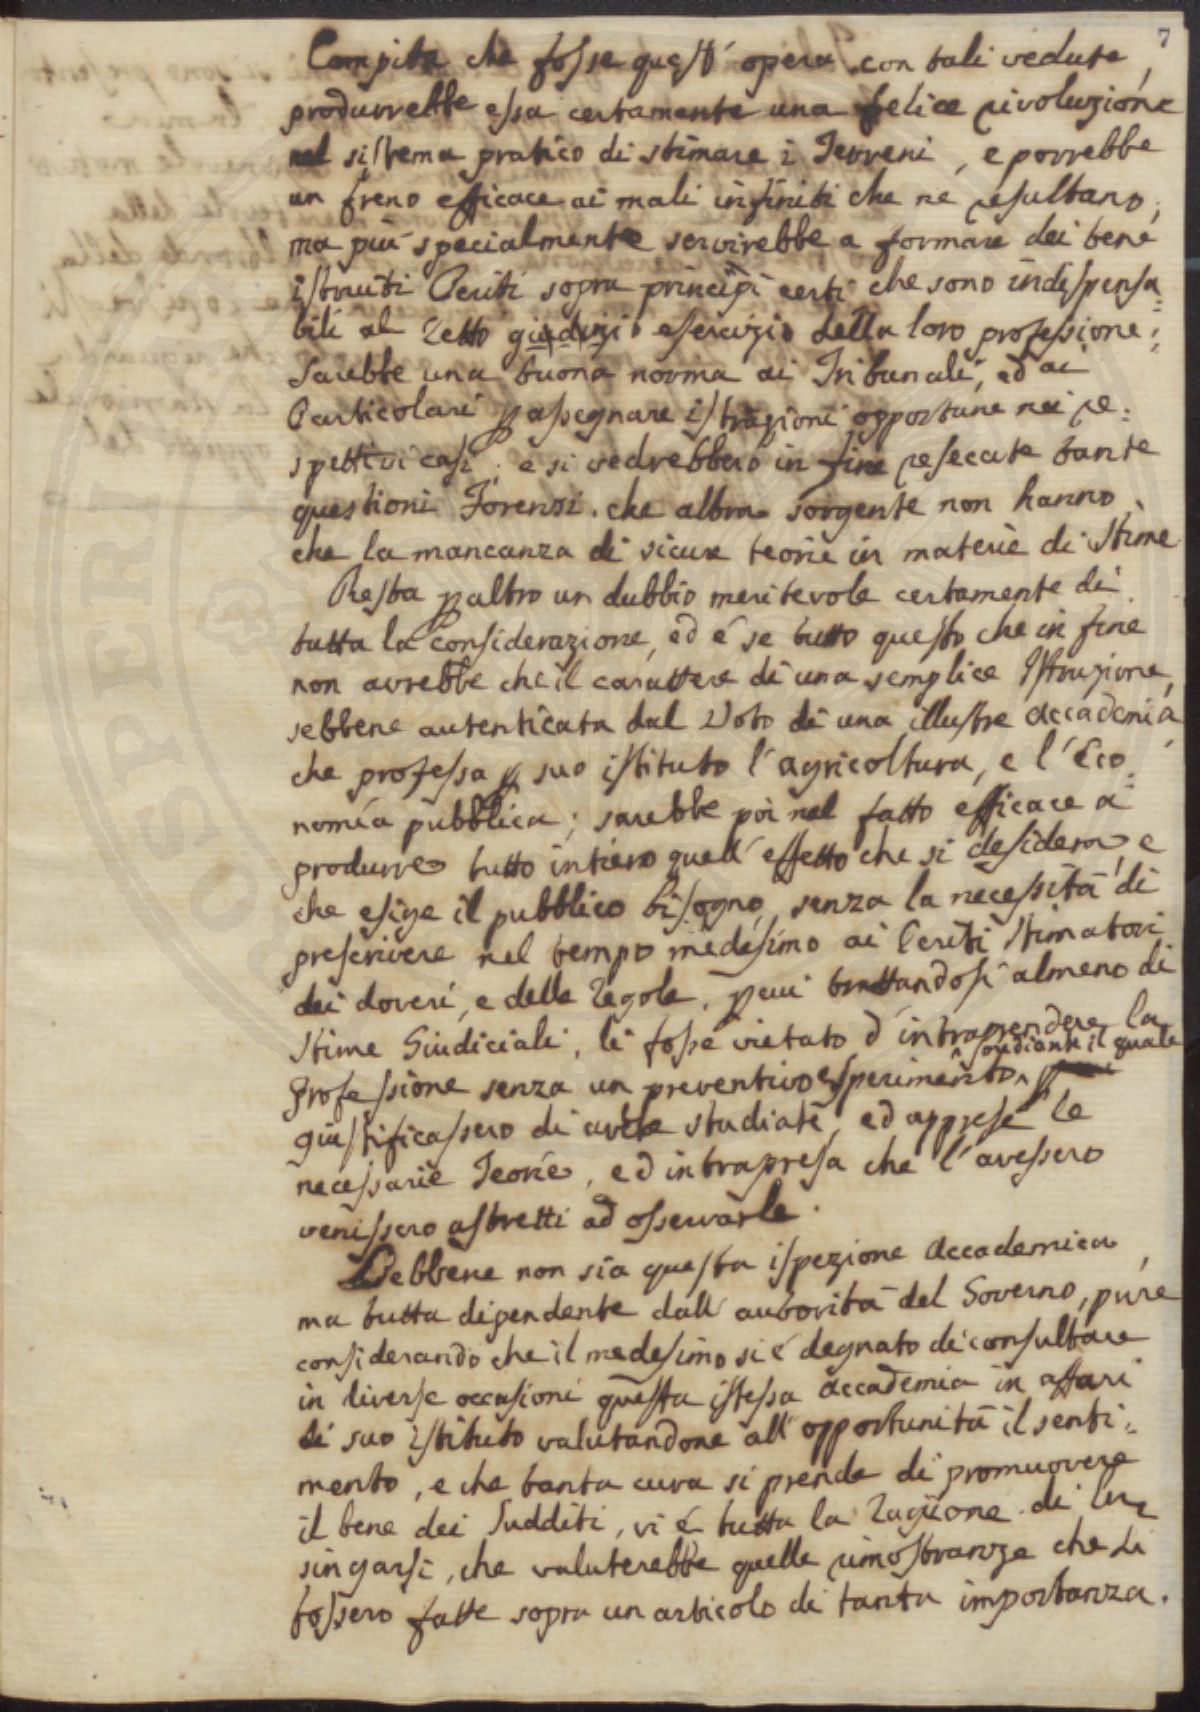 7
Compita che fosse quest' opera con tali vedute,
produrrebbe essa certamente una felice rivoluzione
nel sistema pratico di stimare i Terreni, e porrebbe
un freno efficace ai mali infiniti che ne resultano;
ma più specialmente servirebbe a formare dei bene
istruiti Periti sopra principj certi che sono indispensa=
bili al retto giudizio esercizio della loro professione;
Sarebbe una buona norma ai Tribunali, ed ai
Particolari p assegnare istruzioni opportune nei re=
spettivi casi; e si vedrebbero in fine resecate tante
questioni Forensi, che altra sorgente non hanno,
che la mancanza di sicure teorie in materie di Stime
Resta p altro un dubbio meritevole certamente di
tutta la considerazione, ed é se tutto questo, che in fine
non avrebbe che il carattere di una semplice Istruzione,
sebbene autenticata dal Voto di una illustre Accademia
che professa p suo istituto l'agricoltura, e l'Eco=
nomía pubblica; sarebbe poi nel fatto efficace a
produrre tutto intiero quell' effetto che si desidera, e
che esige il pubblico bisogno, senza la necessità di
prescrivere nel tempo medesimo ai Periti Stimatori
dei doveri, e delle regole, p cui trattandosi almeno di
Stime Giudiciali, li fosse vietato d' intraprendere la
Professione senza un preventivo esperimento, mediante il quale
giustificassero di avere studiate, ed apprese le
necessarie Teorie, ed intrapresa che l' avessero
venissero astretti ad osservarle.
Sebbene non sia questa ispezione Accademica,
ma tutta dipendente dall' autorità del Governo, pure
considerando che il medesimo si é degnato di consultare
in diverse occasioni questa istessa Accademia in affari
di suo istituto valutandone all' opportunità il senti=
mento, e che tanta cura si prende di promuovere
il bene dei Sudditi, vi é tutta la ragione di lu=
singarsi, che valuterebbe quelle rimostranze che li
fossero fatte sopra un articolo di tanta importanza.